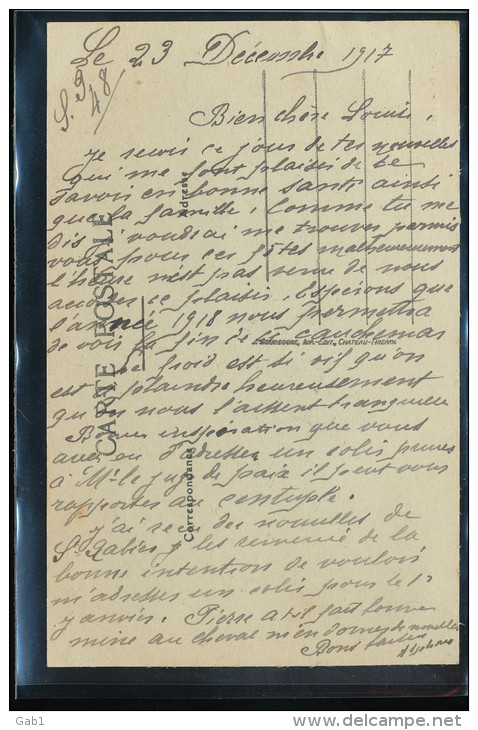 Le 23 Décembre 1917
S. P. 48
Bien chère Louise,
je reçois ce jour de tes nouvelles
qui me font plaisir de te
savoir en bonne santé ainsi
que la famille. Comme tu me
dis voudrai me trouver permis
vous pour ces fêtes malheureusement
l'heure n'est pas venue de nous
accorder ce plaisir. Espérons que
l'année 1918 nous permettra
de voir la fin de ce cauchemar
Le froid est si vif qu'on
est plaindre heureusement
qu'on nous l'assent tranquille
Bonne inspiration que vous
avez eu d'adresser un colis
à Mr le juge de paix il peut vous
rapporter au centuple.
j'ai reçu des nouvelles de
St. je les remercie de la
bonne intention de vouloir
m'adresser un colis pour le 1r
janvier. Pierre a-t-il fait bonne
mine au cheval m'en donner de nouvelles
Bons
CARTE POSTALE
Correspondance
Adresse
BOURGOGNE, IMP.-EDIT., CHATEAU-THIERRY
Gab1
© delcampe.net